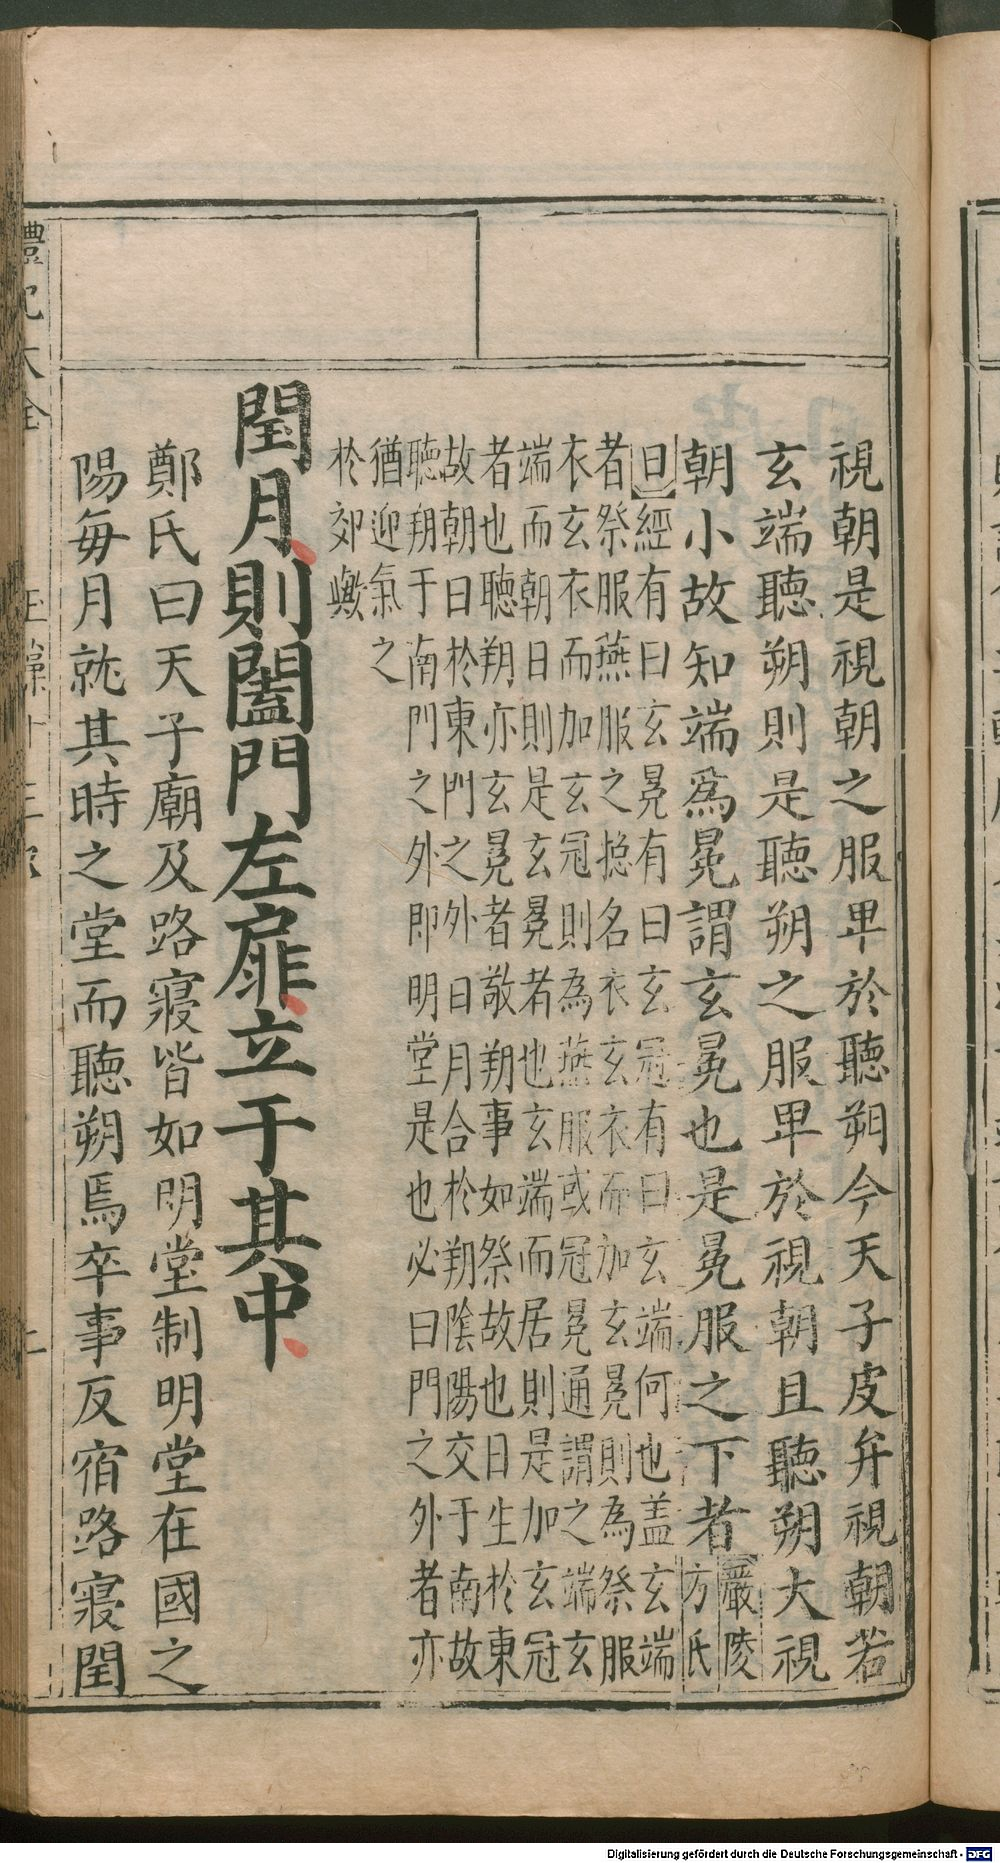 視朝是視朝之服卑於聽朔今天子皮弁視朝若
玄端聽朔則是聽朔之服卑於視朝且聽朔大視
朝小故知端爲冕謂玄冕也是冕服之下者嚴陵
方氏
曰經有曰玄冕有曰玄冠有曰玄端何也盖玄端
者祭服燕服之捴名衣玄衣而加玄冕則為祭服
衣玄衣而加玄冠則為燕服或冠冕通謂之端玄
端而朝日則是玄冕者也玄端而居則是加玄冠
者也聽朔亦玄冕者敬朔事如祭故也日生於東
故朝日於東門之外日月合於朔陰陽交于南故
聽朔于南門之外即明堂是也必曰門之外者亦
猶迎氣之
於郊歟
閏月則闔門左扉立于其中
鄭氏曰天子廟及路寢皆如明堂制明堂在國之
陽每月就其時之堂而聽朔焉卒事反宿路寢閏
禮記大全
Digitalisierung gefördert durch die Deutsche Forschungsgemeinschaft - DFG